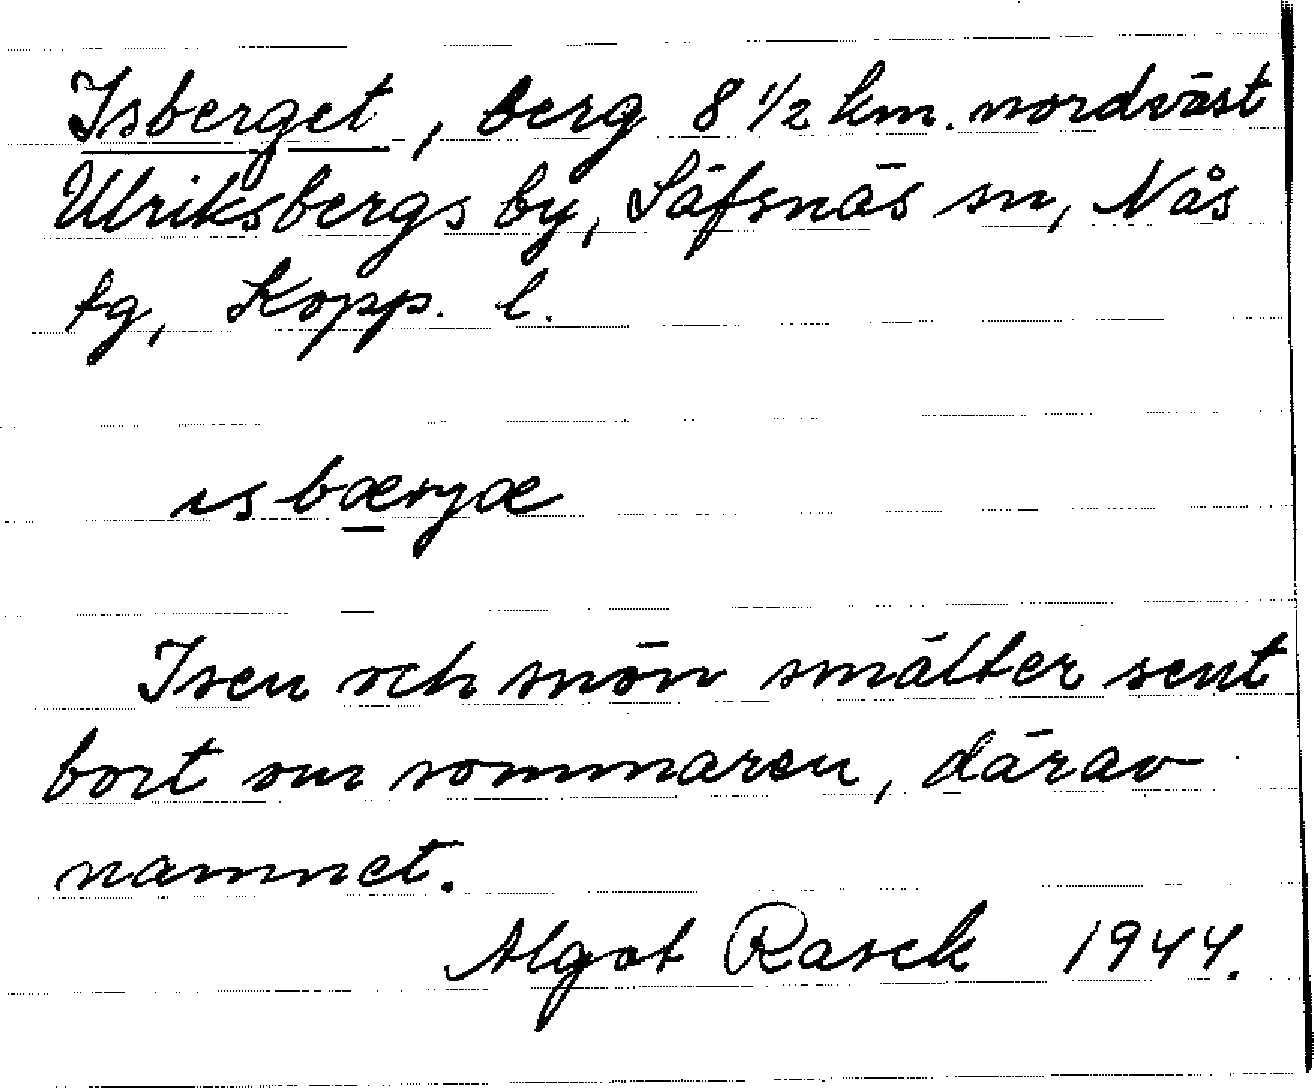 Isberget, berg 8 1/2 km. nordväst
Ulriksbergs by, Säfsnäs sn, Nås
tg, Kopp. l.
isbæryæ
Isen och snön smälter sent
bort om sommaren, därav
namnet.
Algot Rasck 1944.